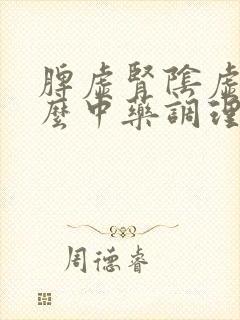 脾虛腎陰虛
麼中藥調理
周德睿